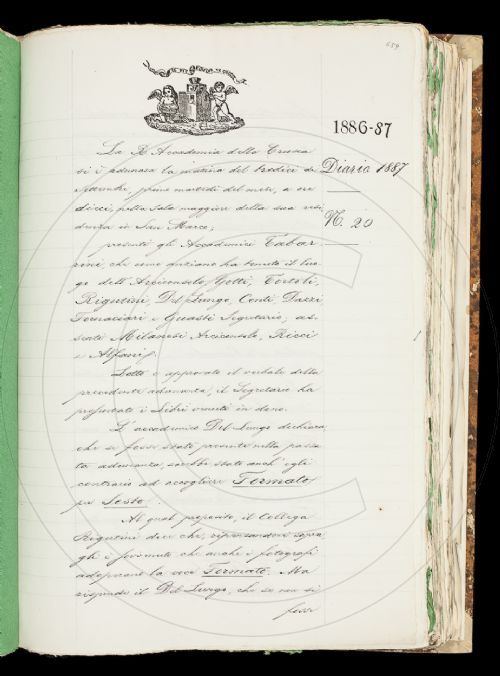 659
1886-87
Diario 1887
N. 20
La R. Accademia della Crusca
si è adunata la mattina del tredici di
Settembre, primo martedì del mese, a ore
dieci, nella sala maggiore della sua resi
denza in San Marco;
presenti gli Accademici Tabar
rini, che come anziano ha tenuto il luo
go dell'Arciconsolo, Gotti, Tortoli,
Rigutini, Del Lungo, Conti, Dazzi
Fornaciari e Guasti Segretario; as
senti Milanesi Arciconsolo, Ricci
e Alfani.
Letto e approvato il verbale della
precedente adunanza, il Segretario ha
presentato i libri venuti in dono.
L'accademico Del Lungo dichiara,
che se fosse stato presente nella passa
ta adunanza, sarebbe stato anch'egli
contrario ad accogliere Formato
per Sesto.
Al qual proposito, il Collega
Rigutini dice che, ripensandovi sopra
gli è sovvenuto che anche i fotografi
adoprano la voce Formato. Ma
risponde il Del Lungo, che se non si
fosse